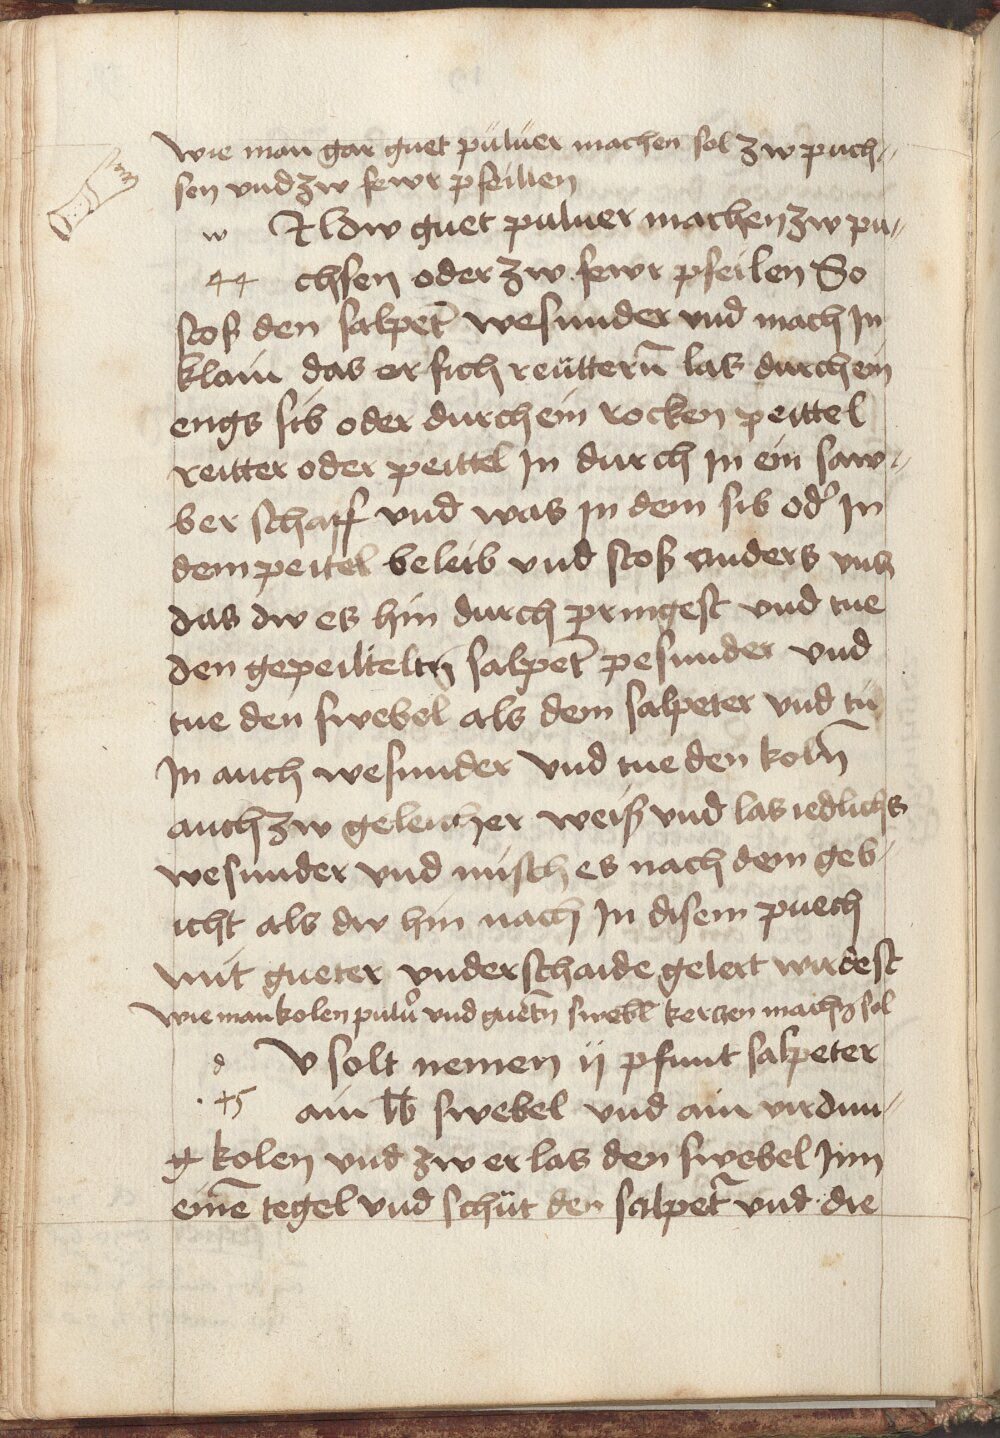 wie man gar guet puluer machen sol zw puch⸗
sen vnd zw fewr pfeillen
w Ildw guet puluer machen zw pu⸗
44 chsen oder zw fewr pfeilen So
stoß den salpet̄ wesunder vnd mach In
klain das er sich reüttern̄ las durch ein
engs sib oder durch ein rocken peittel
reitter oder peittel In durch In ein saw⸗
ber schaff vnd was In dem sib od̾ In
dem peitel beleib vnd stoß anders vnß
das dw es hin durch pringest vnd tue
den gepeilteltn̄ salpet̄ pesunder vnd
tue den swebel als dem salpeter vnd tü
In auch wesunder vnd tue den koln̄
auch zw geleicher weiß vnd las iedlichs
wesunder vnd misch es nach dem geb⸗
icht als dw hin nach In disem puech
mit gueter vnderschaide gelert wirdest
wie man kolen pulu̾ vnd guetn̄ swebl̄ kerczen machn̄ sol
d V solt nemen ij pfunt salpeter
45 ain lb swebel vnd ain virdun⸗
g kolen vnd zw er las den swebel Inn
eine͂ tegel vnd schüt den salpet̾ vnd die